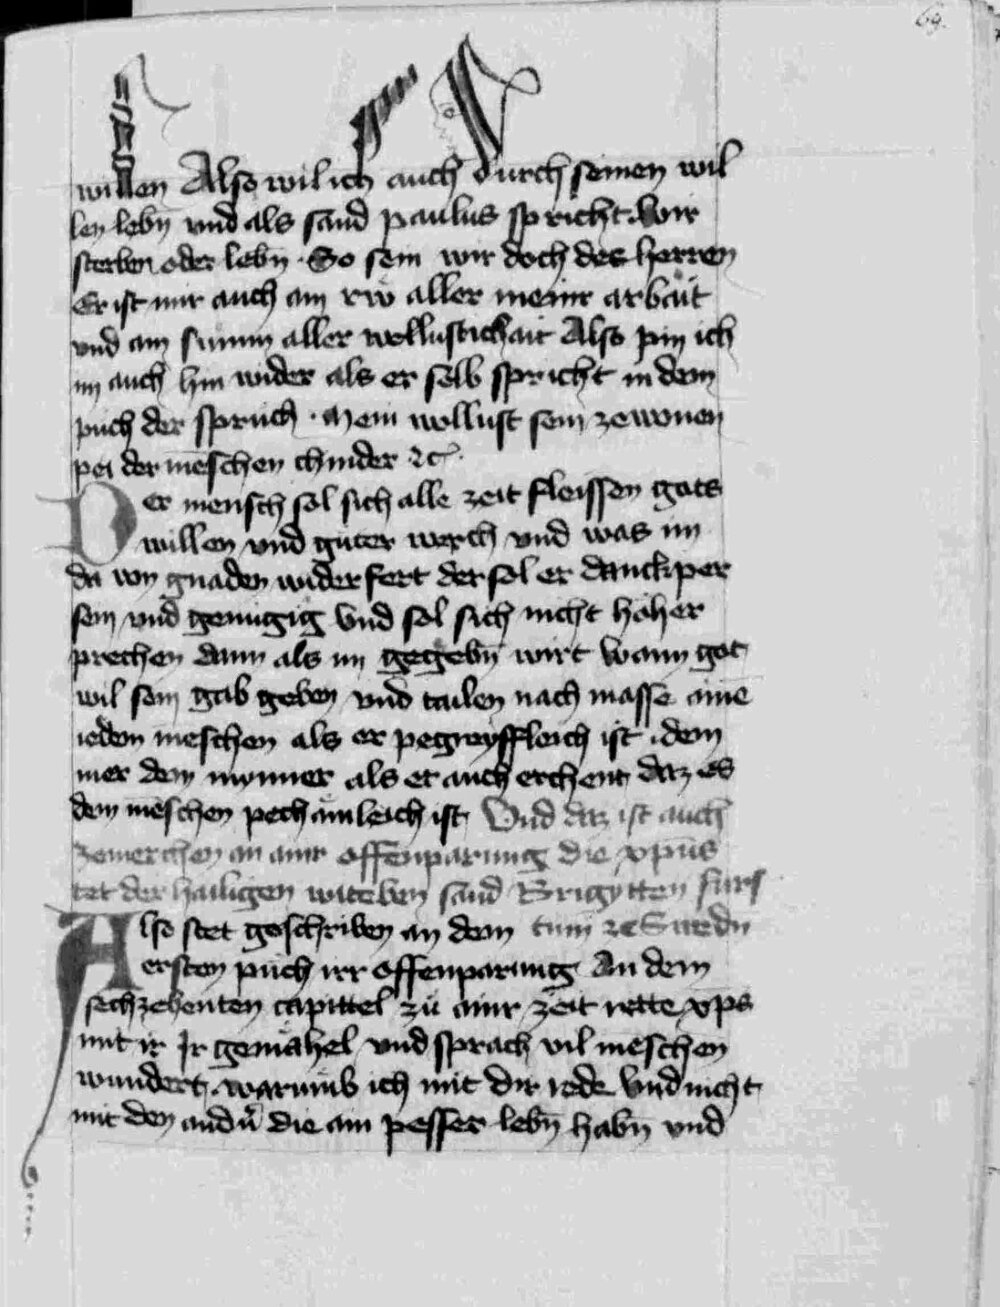 69.
willen Also wil ich auch durch seinen wil
len lebn̄ vnd als sand paulus spricht. Wir
sterben oder lebn̄. So sein wir doch des herren
Er ist mir auch ain rẘ aller meinr arbait
vnd ain sumim aller wollustichait Also pin ich
im auch hin wider als er selb spricht in dem
puch der spruch. Mein wollust sein ze wonen
pei der mēschen chinder ꝛc̄.
Der mensch sol sich alle zeit fleissen gots
willen vnd guter werch vnd was im
da von gnaden wider fert der sol er danckper
sein vnd genugig Vnd sol sich nicht hoher
prechen dann als im gegebn̄ wirt Wann got
wil sein gab geben vnd tailen nach masse ainē
iedem mēschen als er pegreyffleich ist. dem
mer dem mynner als er auch erchent daz es
dem mēschen pechämleich ist Vnd daz ist auch
zemerchen an ainr offenparung die xp̄us
tet der hailigen witeben sand Brigytten furs
Also stet geschriben an dem tum ꝛc Swedn̄
ersten puch irr offenparung An dem
sechzehenten capittel zu ainr zeit rette xp̄s
mit ir Ir gemahel vnd sprach vil mēschen
wundert. warumb ich mit dir rede Vnd nicht
mit den andn̄ die ain pesser lebn̄ habn̄ vnd